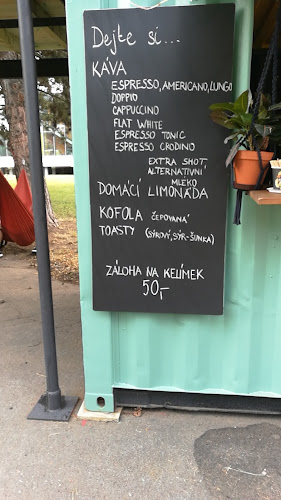 Dejte si...
KÁVA
ESPRESSO, AMERICANO, LUNGO
DOPPIO
CAPPUCCINO
FLAT WHITE
ESPRESSO TONIC
ESPRESSO CRODINO
EXTRA SHOT
ALTERNATIVNÍ
MLÉKO
DOMÁCÍ LIMONÁDA
KOFOLA ČEPOVANÁ
TOASTY (SÝROVÝ, SÝR-ŠUNKA)
ZÁLOHA NA KELÍMEK
50,-